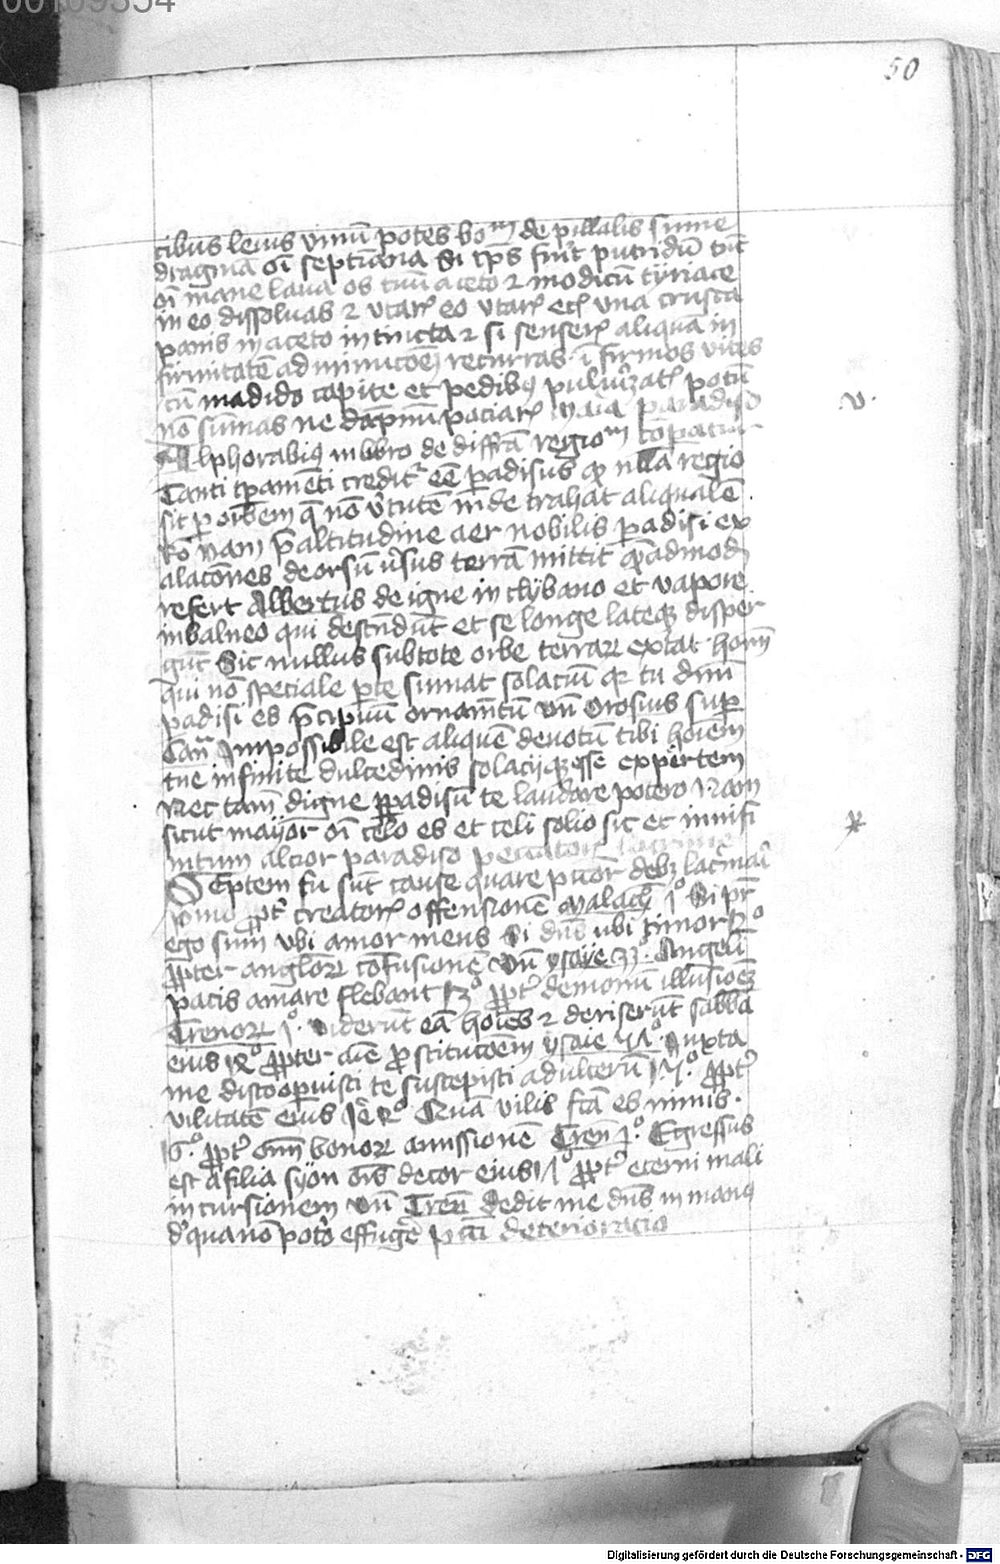 00109354
50
cibus leuis vinū potes bo^m de pillulis sume
dragmā oī septiana Si tp̄s fuīt putridū tūc
oī mane laua os tuū aceto ⁊ modicū tyriace
in eo dissoluas ⁊ utar^ eo vtar^ ecī vna crusta
panis in aceto intincta ⁊ si senser^ aliquā in
firmitatē ad recurras ī firmos vites
cū madido capite et pedibꝰ pulūizatꝭ potū
nō sumas ne dāpnū paciar^ Maīa paradiso
Alphorabiꝰ in libro de diffrā regio^m cōpatur
Tanti tpamēti creditꝰ eē padisus qp nlla regio
sit p orbem q̄ nō v̓tutē inde trahat aliqualē
Rō Nam p̄ altitudine aer nobilis padisi ex
alacōnes deorsū v̓sus terrā mittit qēadmodū
refert Albertus de igne in clybano et vapore
in balneo qui descēdūt et se longe lateqꝫ disper
gūt Sic nullus sub tote orbe terrar extat homī
qui nō speciale pte sumat solaciū qꝛ tu dīni
padisi es p̄cipuū ornamētū Vn̄ Orosius sup
Can̄ Impossibile est aliquē deuotū tibi hoīem
tue infinite dulcedinis solacijqꝫ esse expertem
Nec tam̄ digne paradisū te laudare potero Nam
sicut maijor oī celo es et celi solio sic et in infi
nitum alcior paradiso peccatoris lacrime
SEptem sūt cause quare pctor debꝫ lac̓mari
primo ppt̓ creator^ offensionē Malach̓ jº Si pr̄
ego sum vbi amor meus Si dn̄s ubi timor 2º
ppter anglorꝝ cōfusionē Vn̄ ysaie 33º Angeli
pacis amare flebant 3º ppt̓ demonū illusiōeꝫ
Trenorꝝ jº viderūt eā hoīes ⁊ deriserūt sabba
eius 4º ppter aīe p̄stitucōem ysaie Iuxta
me discoopuisti te suscepisti adulterū 5º ppt̓
vilitatē eius Jē 2º Quā vilis fcā es nimis
6º ppt̓ oīm bonorꝝ amissionē Tren̄ jº Egressus
est a filia syon oīs decor eius 7º ppt̓ eterni mali
incursionem Vn̄ Tren̄ dedit me dn̄s in manꝰ
d̓ qua nō pot̓o effug̓e pcti deterioracio
.v.
Digitalisierung gefördert durch die Deutsche Forschungsgemeinschaft - DFG